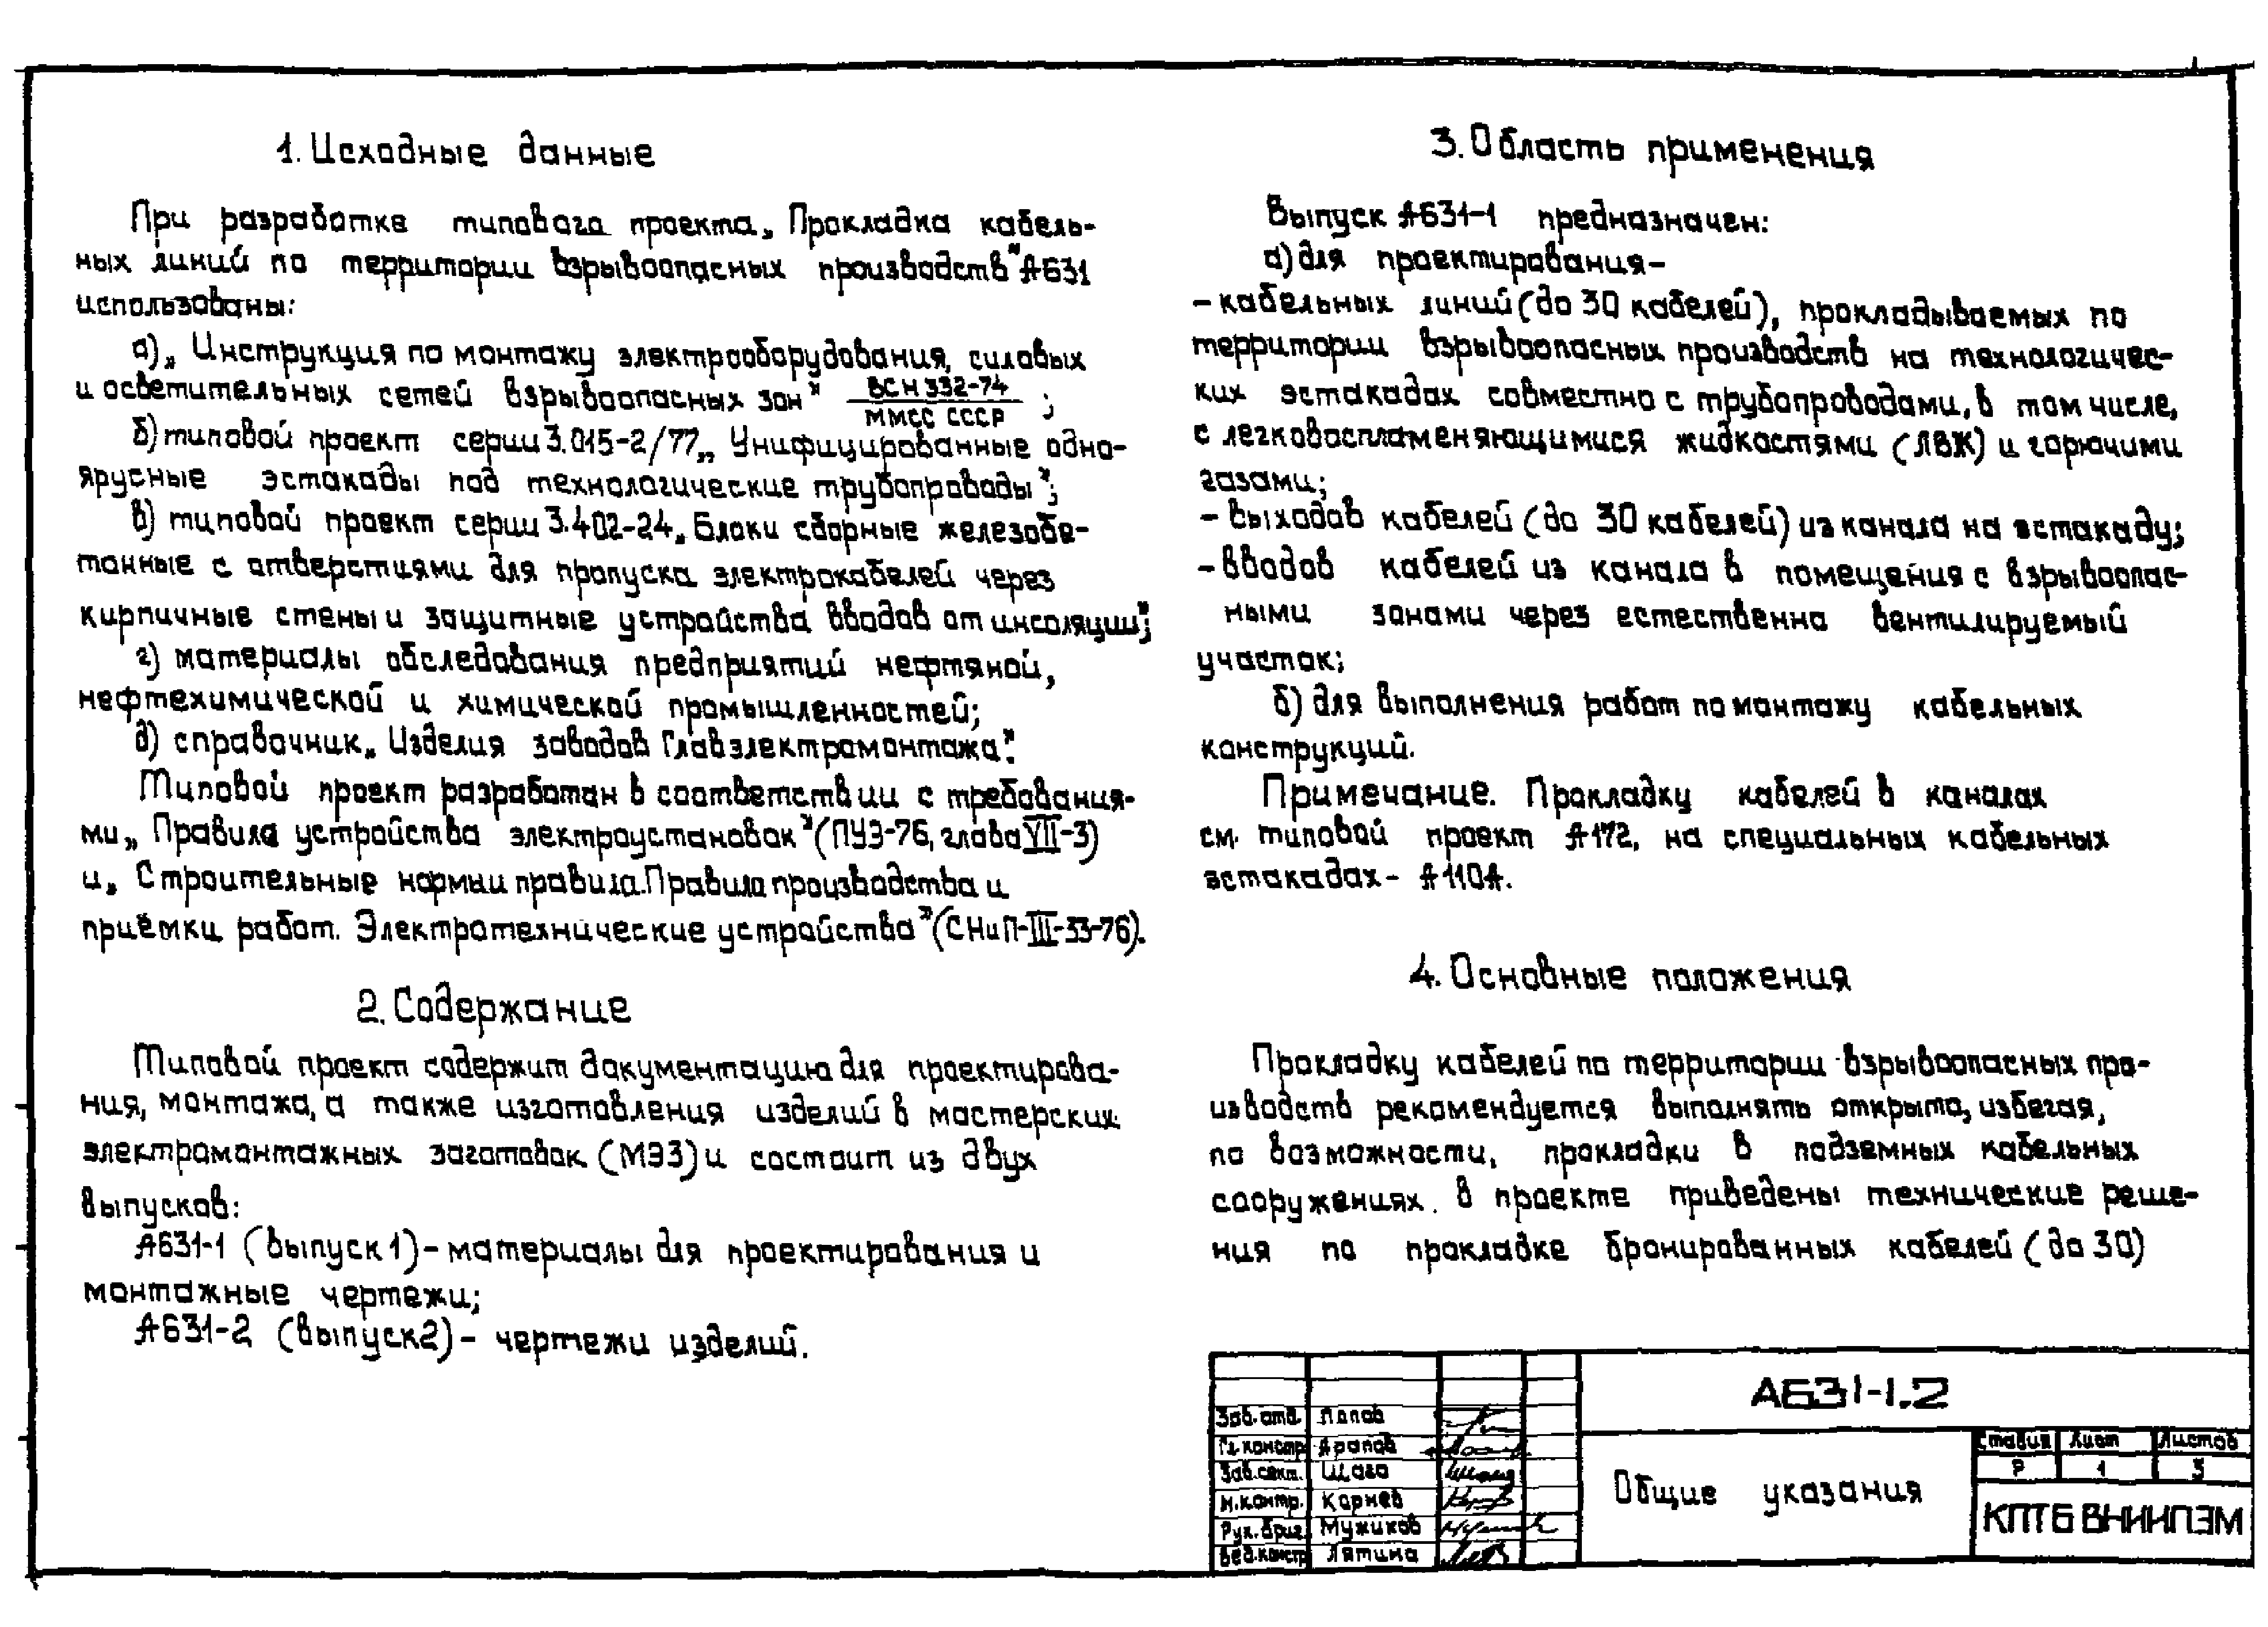 1. Исходные данные
При разработке типового проекта „Прокладка кабель-
ных линий по территории взрывоопасных производств" А631
использованы:
а) „Инструкция по монтажу электрооборудования, силовых
и осветительных сетей взрывоопасных зон" ВСН 332-74
ММСС СССР ;
б) типовой проект серии 3.015-2/77 „Унифицированные одно-
ярусные эстакады под технологические трубопроводы";
в) типовой проект серии 3.402-24 „Блоки сборные железобе-
тонные с отверстиями для пропуска электрокабелей через
кирпичные стены и защитные устройства вводов от инсоляции";
г) материалы обследования предприятий нефтяной,
нефтехимической и химической промышленностей;
д) справочник „Изделия заводов Главэлектромонтажа".
Типовой проект разработан в соответствии с требования-
ми „Правила устройства электроустановок" (ПУЭ-76, глава VII-3)
и „Строительные нормы и правила. Правила производства и
приёмки работ. Электротехнические устройства" (СНиП-III-33-76).
2. Содержание
Типовой проект содержит документацию для проектирова-
ния, монтажа, а также изготовления изделий в мастерских
электромонтажных заготовок (МЭЗ) и состоит из двух
выпусков:
А631-1 (выпуск 1) - материалы для проектирования и
монтажные чертежи;
А631-2 (выпуск 2) - чертежи изделий.
3. Область применения
Выпуск А631-1 предназначен:
а) для проектирования -
- кабельных линий (до 30 кабелей), прокладываемых по
территории взрывоопасных производств на технологичес-
ких эстакадах совместно с трубопроводами, в том числе,
с легковоспламеняющимися жидкостями (ЛВЖ) и горючими
газами;
- выходов кабелей (до 30 кабелей) из канала на эстакаду;
- вводов кабелей из канала в помещения с взрывоопас-
ными зонами через естественно вентилируемый
участок;
б) для выполнения работ по монтажу кабельных
конструкций.
Примечание. Прокладку кабелей в каналах
см. типовой проект А172, на специальных кабельных
эстакадах - А110А.
4. Основные положения
Прокладку кабелей по территории взрывоопасных про-
изводств рекомендуется выполнять открыто, избегая,
по возможности, прокладки в подземных кабельных
сооружениях. В проекте приведены технические реше-
ния по прокладке бронированных кабелей (до 30)
А631-1.2
Зав. отд. Попов
Гл. констр. Арапов
Зав. сект. Шаго
Н. контр. Корнев
Рук. бриг. Мужиков
Вед. констр. Лятина
Общие указания
Стадия Лист Листов
Р 1 3
КПТБ ВНИИПЭМ